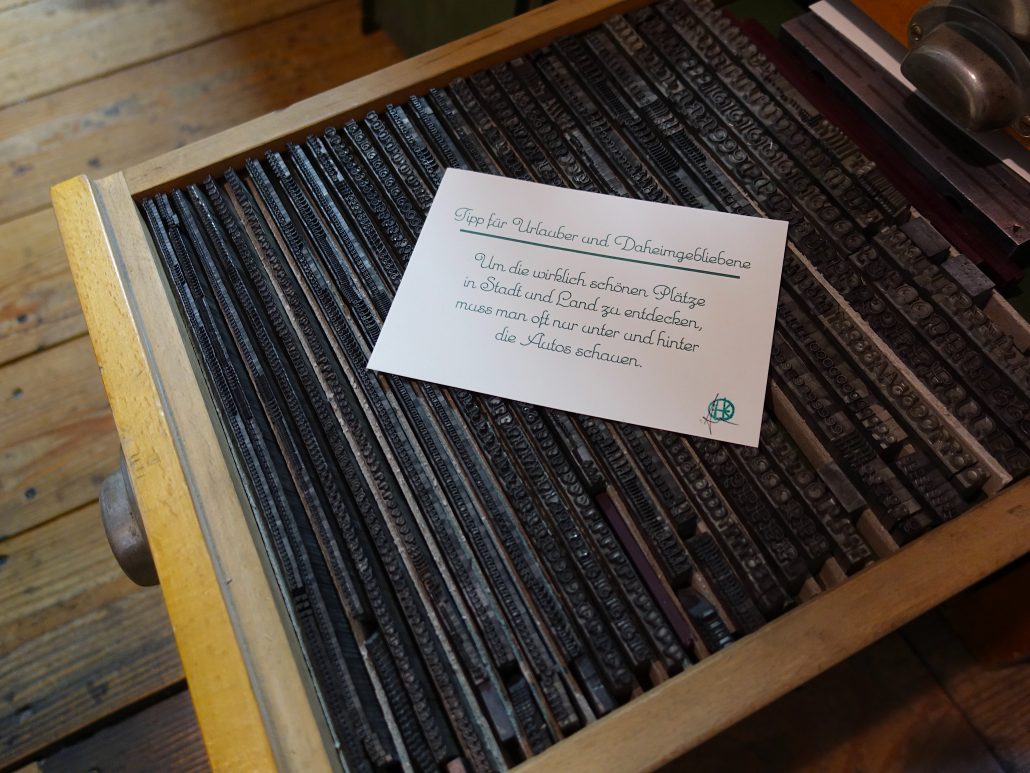 Tipp für Urlauber und Daheimgebliebene
Um die wirklich schönen Plätze
in Stadt und Land zu entdecken,
muss man oft nur unter und hinter
die Autos schauen.